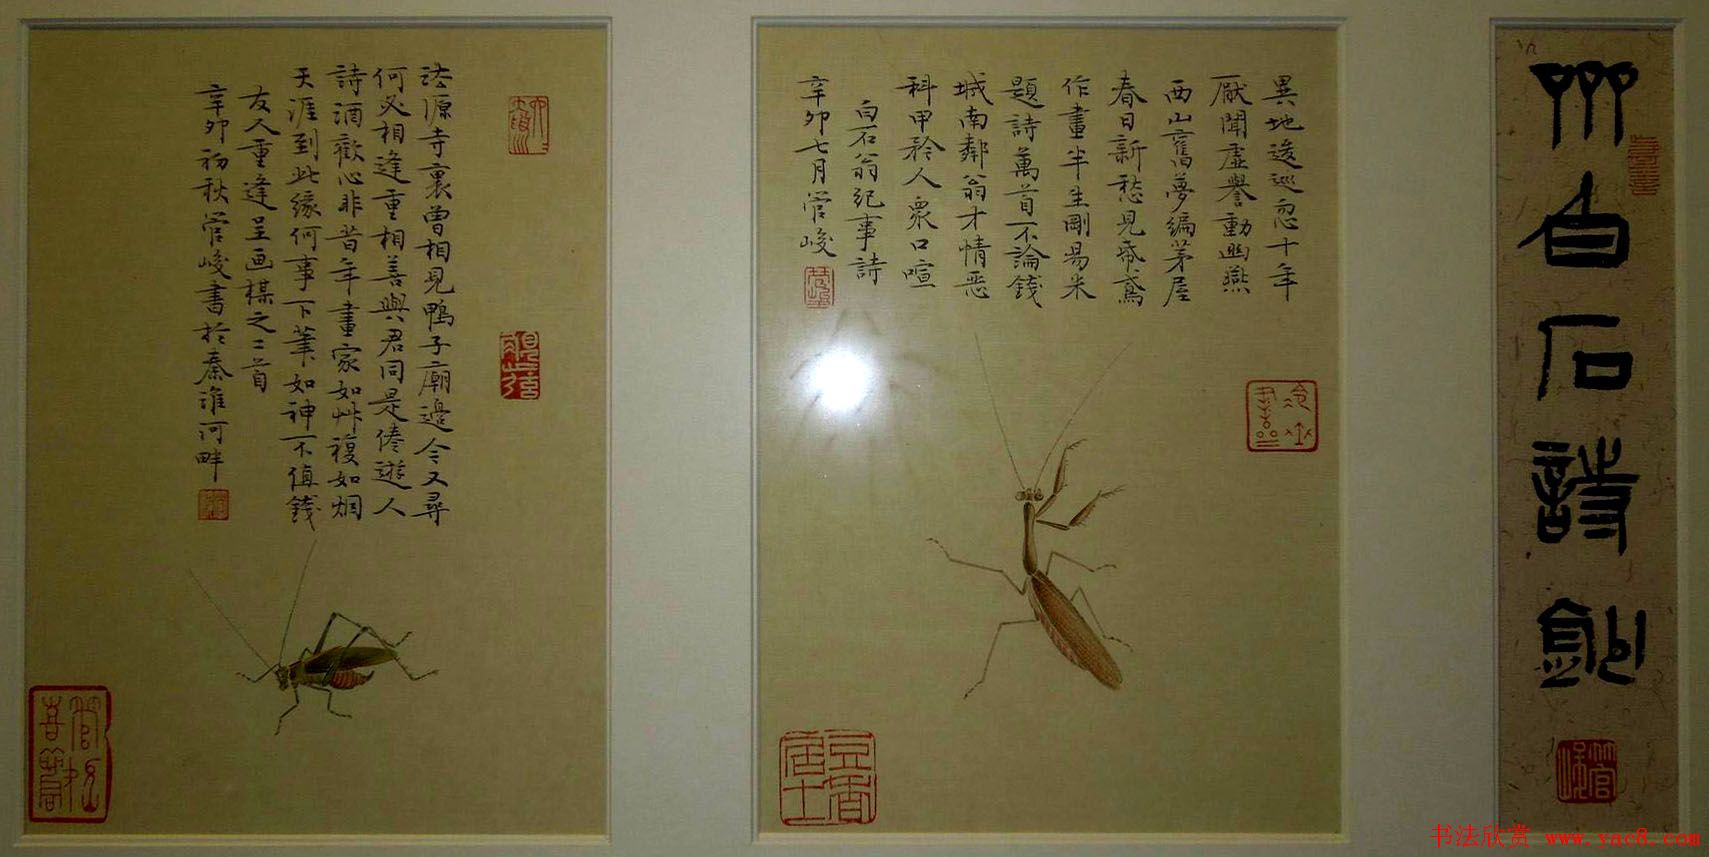 齊白石詩鈔
異地逡巡忽十年
厭聞虛譽動幽燕
西山舊夢編茅屋
春日新愁見帋鳶
作畫半生剛易米
題詩萬首不論錢
城南鄰翁才情惡
科甲矜人衆口喧
白石翁紀事詩
辛卯七月管峻
法源寺裏曾相見鴨子廟邊今又尋
何必相逢重相善與君同是倦遊人
詩酒歡心非昔年畫家如艸複如烟
天涯到此緣何事下筆如神不值錢
友人重逢呈画楳之二首
辛卯初秋管峻書於秦淮河畔
书法欣赏 www.yac8.com